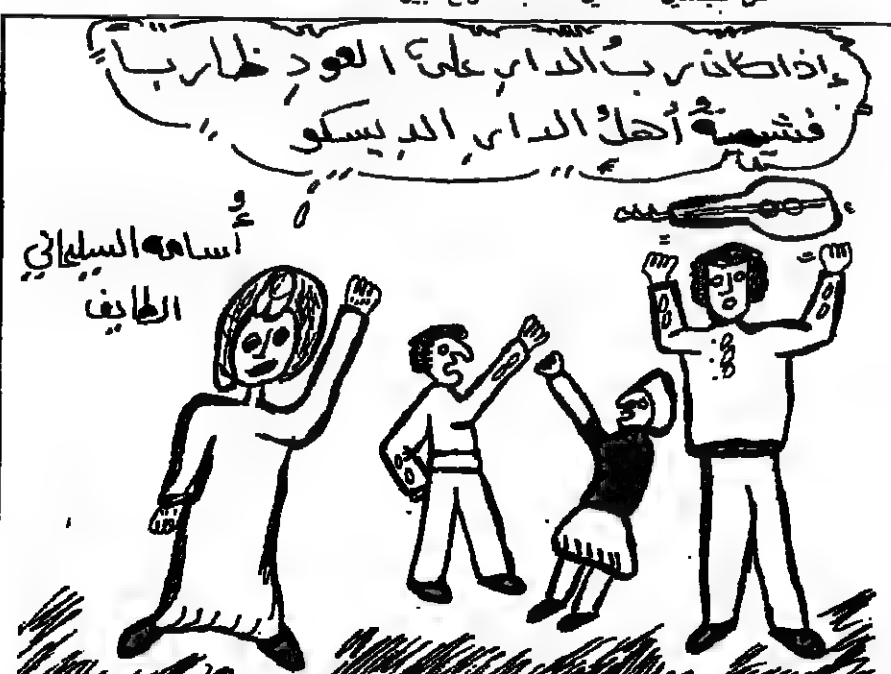 إذا كان رب الدار على العود ظاربـاً
فشيمةُ أهلُ الدار الديسكو
أُسامه السليماني
الطايف